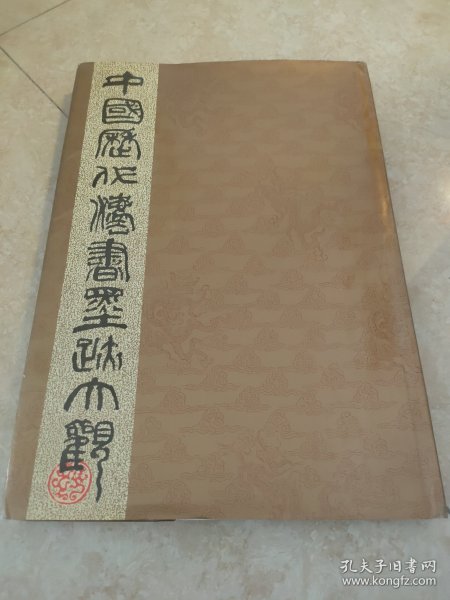 中國歷代法書墨迹大觀
孔夫子旧书网
www.kongfz.com